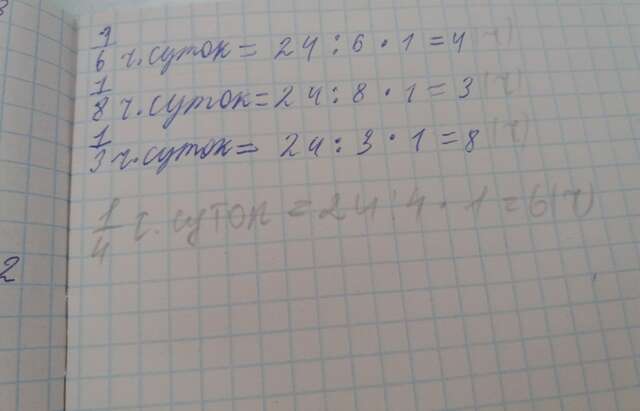 1/6 ч. суток = 24 : 6 · 1 = 4 (ч)
1/8 ч. суток = 24 : 8 · 1 = 3 (ч)
1/3 ч. суток = 24 : 3 · 1 = 8 (ч)
1/4 ч. суток = 24 : 4 · 1 = 6 (ч)
2